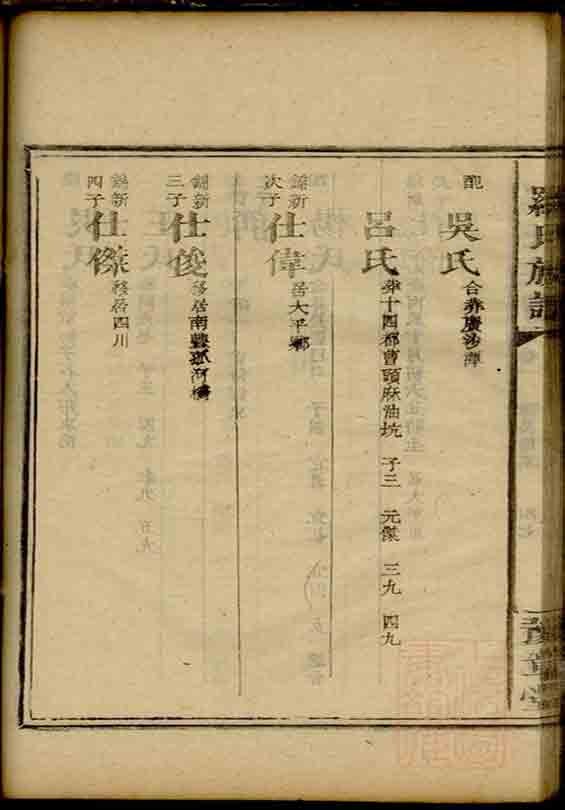 羅氏族譜
配 吳氏 合葬廣沙潭
呂氏 葬十四都曹頭麻油坑 子三 元傑 三九 四九
錦新次子 仕偉 居大平鄉
錦新三子 仕俊 移居南雄孤河橋
錦新四子 仕傑 移居四川
豫章堂